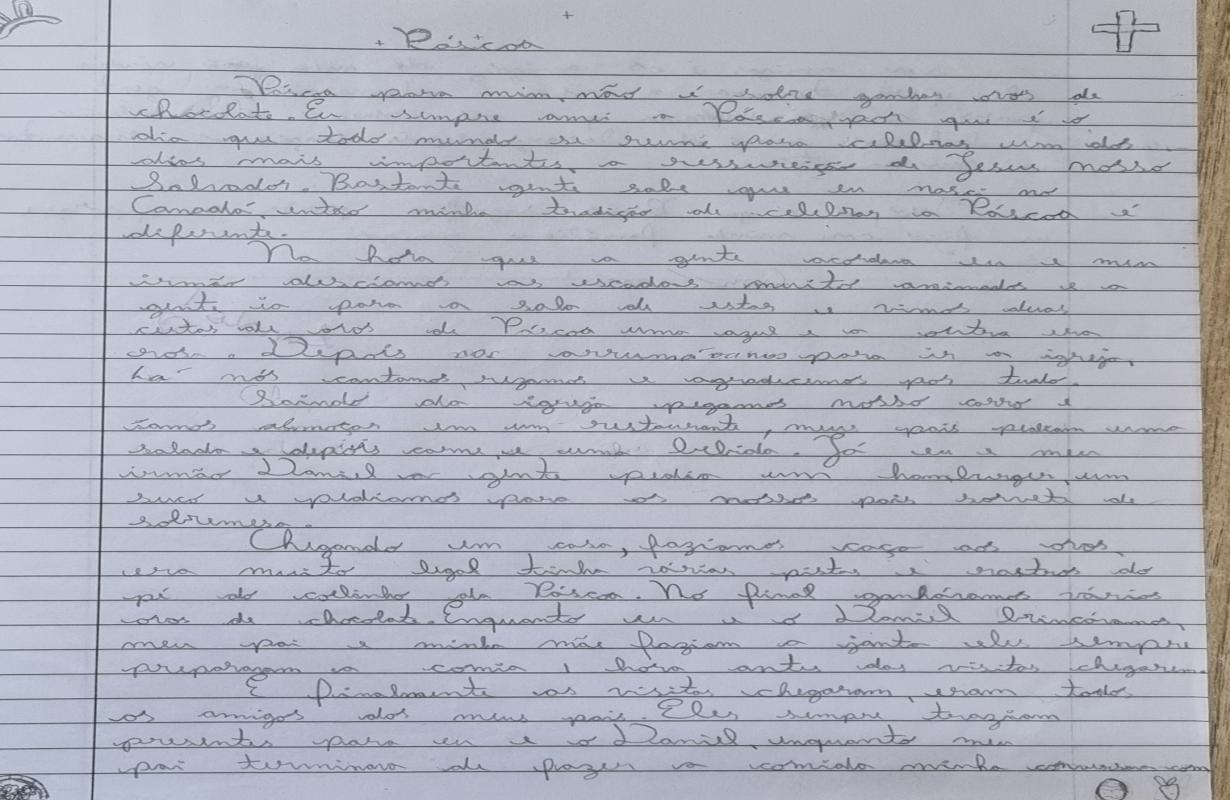 Páscoa
Páscoa para mim, não é sobre ganhar ovos de
chocolate. Eu sempre amei a Páscoa, por que é o
dia que todo mundo se reune para celebrar um dos
dias mais importantes, a ressureição de Jesus nosso
Salvador. Bastante gente sabe que eu nasci no
Canadá, então minha tradição de celebrar a Páscoa é
diferente.
Na hora que a gente acordava eu e meu
irmão desciamos as escadas muito animados e a
gente ia para a sala de estar e vimos duas
cestas de ovos de Páscoa uma azul e a outra era
rosa. Depois nos arrumávamos para ir a igreja,
Lá nós cantamos, rezamos e agradecemos por tudo.
Saindo da igreja pegamos nosso carro e
íamos almoçar em um restaurante, meus pais pediam uma
salada e depois carne, e uma bebida. Já eu e meu
irmão Daniel a gente pedia um hamburger, um
suco e pediamos para os nossos pais sorvete de
sobremesa.
Chegando em casa, faziamos caça aos ovos,
era muito legal tinha várias pistas e rastros do
pé do coelinho da Páscoa. No final ganháramos vários
ovos de chocolate. Enquanto eu e o Daniel brincávamos,
meu pai e minha mãe faziam a janta eles sempre
preparavam a comia 1 hora antes das visitas chegarem.
E finalmente as visitas chegaram, eram todos
os amigos dos meus pais. Eles sempre traziam
presentes para eu e o Daniel, enquanto meu
pai terminava de fazer a comida minha conversava com